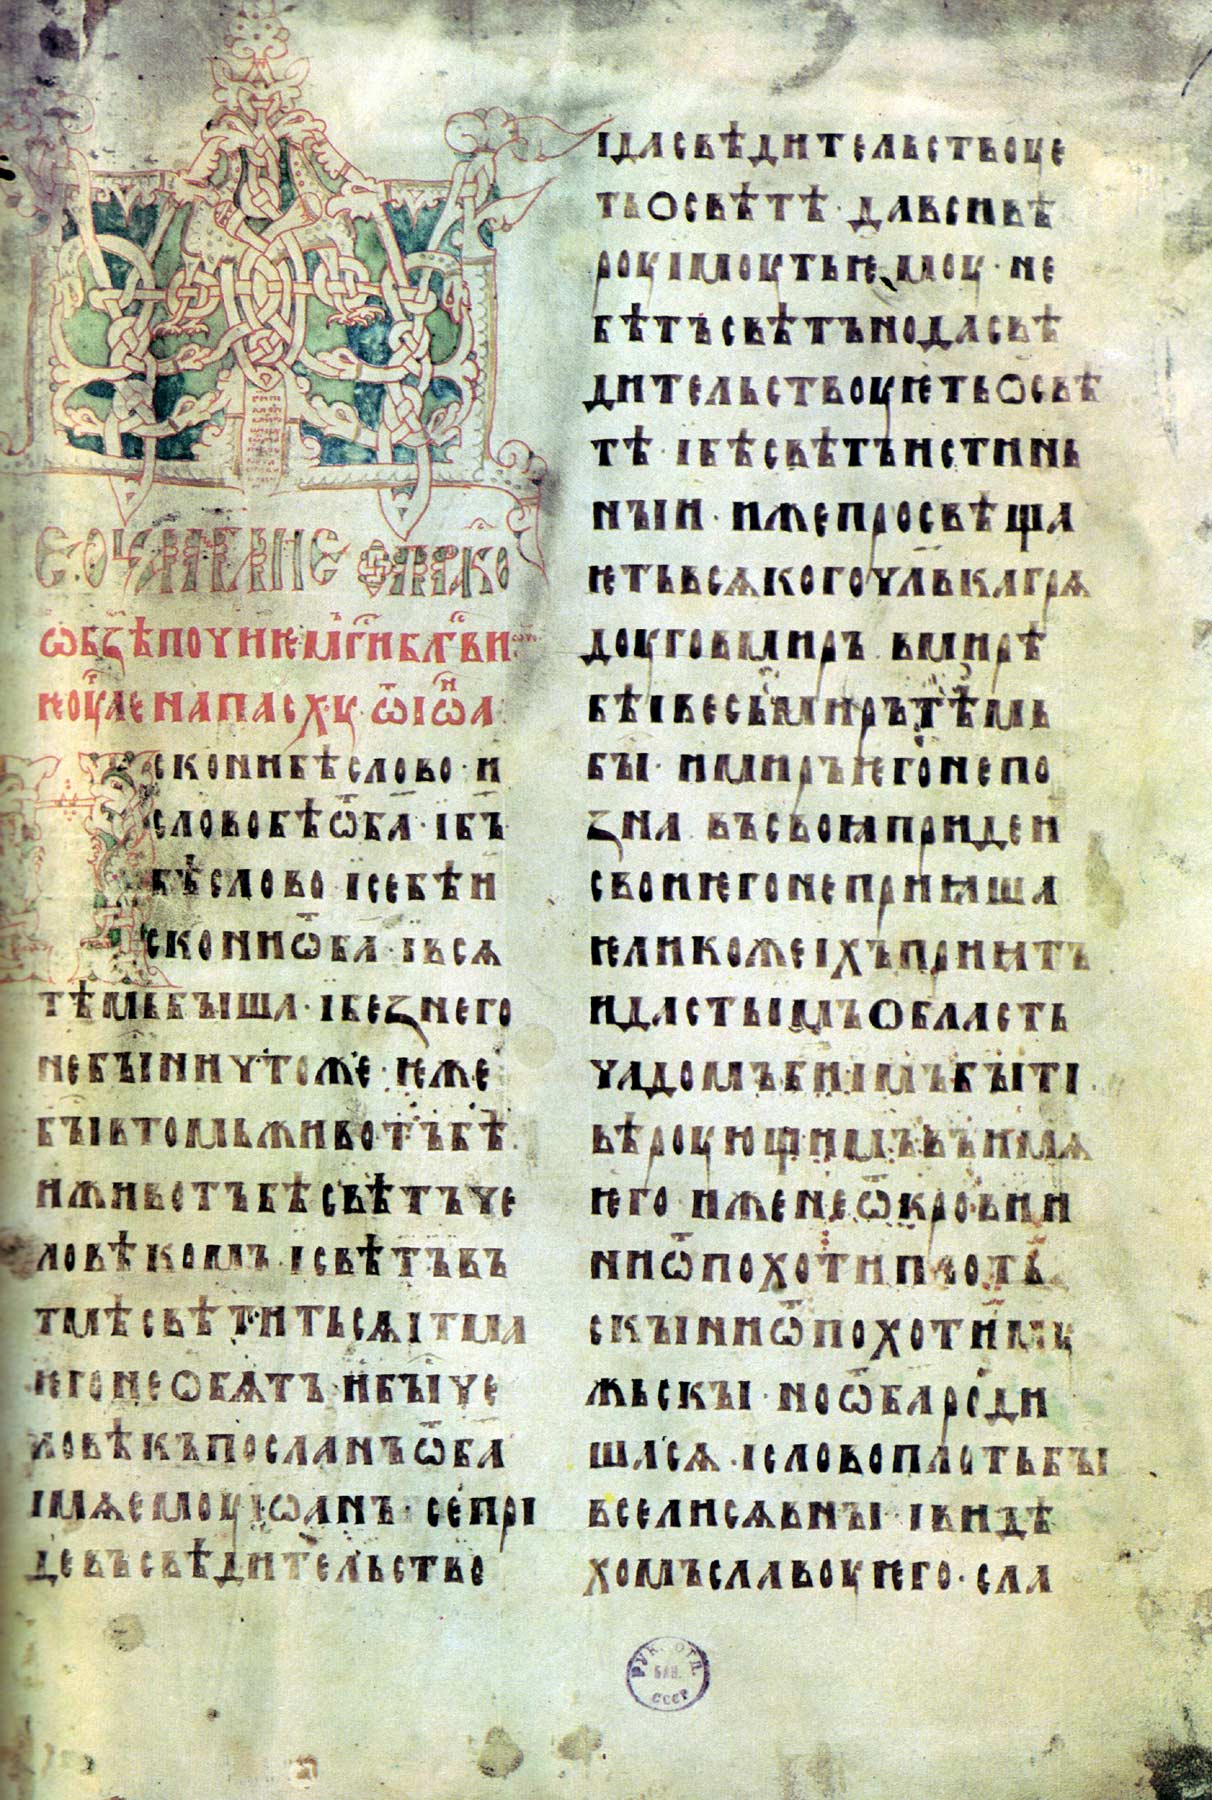 еѵⷢ҇лие апрако
ѡ бз҃ѣ почнемъ гⷭ҇и блгⷭ҇ви ѡⷱ҇е
неⷣ҇лѧ на пасхꙋ · ѿ іѡⷩ҇а
Искони бѣ слово · и
слово бѣ ѿ ба҃ · і бъ҃
бѣ слово · і се бѣ и
скони ѿ ба҃ · і всѧ
тѣмь бꙑша · і без него
не бꙑ ничтоже · ѥже
бꙑ в томь животъ бѣ
и животъ бѣ свѣтъ че
ловѣкомъ · і свѣтъ въ
тмѣ свѣтитьсѧ і тма
ѥго не обѧтъ · и бꙑ че
ловѣкъ посланъ ѿ ба҃
імѧ емоу іѡанъ · се прі
де въ свѣдительство
і да свѣдительствоує
ть о свѣтѣ · да вси вѣ
роу імоуть ѥмоу · не
бѣ тъ свѣтъ но да свѣ
дительствоуѥть о свѣ
тѣ · і бѣ свѣтъ истинь
нꙑи · иже просвѣща
ѥть всѧкого чл҃вка грѧ
доуго в миръ в мирѣ
бѣ і весь миръ тѣмь
бꙑ · и миръ ѥго не по
зна въ своꙗ приде и
свои ѥго не приꙗша
ѥлико же іхъ приꙗтъ
и дасть омъ область
чадомъ бн҃імъ бꙑті
вѣроующимъ въ имѧ
ѥго иже не ѿ крови и
ни ѿ похоти плотъ
скꙑ ни ѿ похоти моу
жьскꙑ · но ѿ ба҃ роди
шасѧ · і слово плоть бꙑ
вселисѧ в нꙑ · і видѣ
хомъ славоу ѥго · сла
РУК. ОТД.
БАН.
СССР